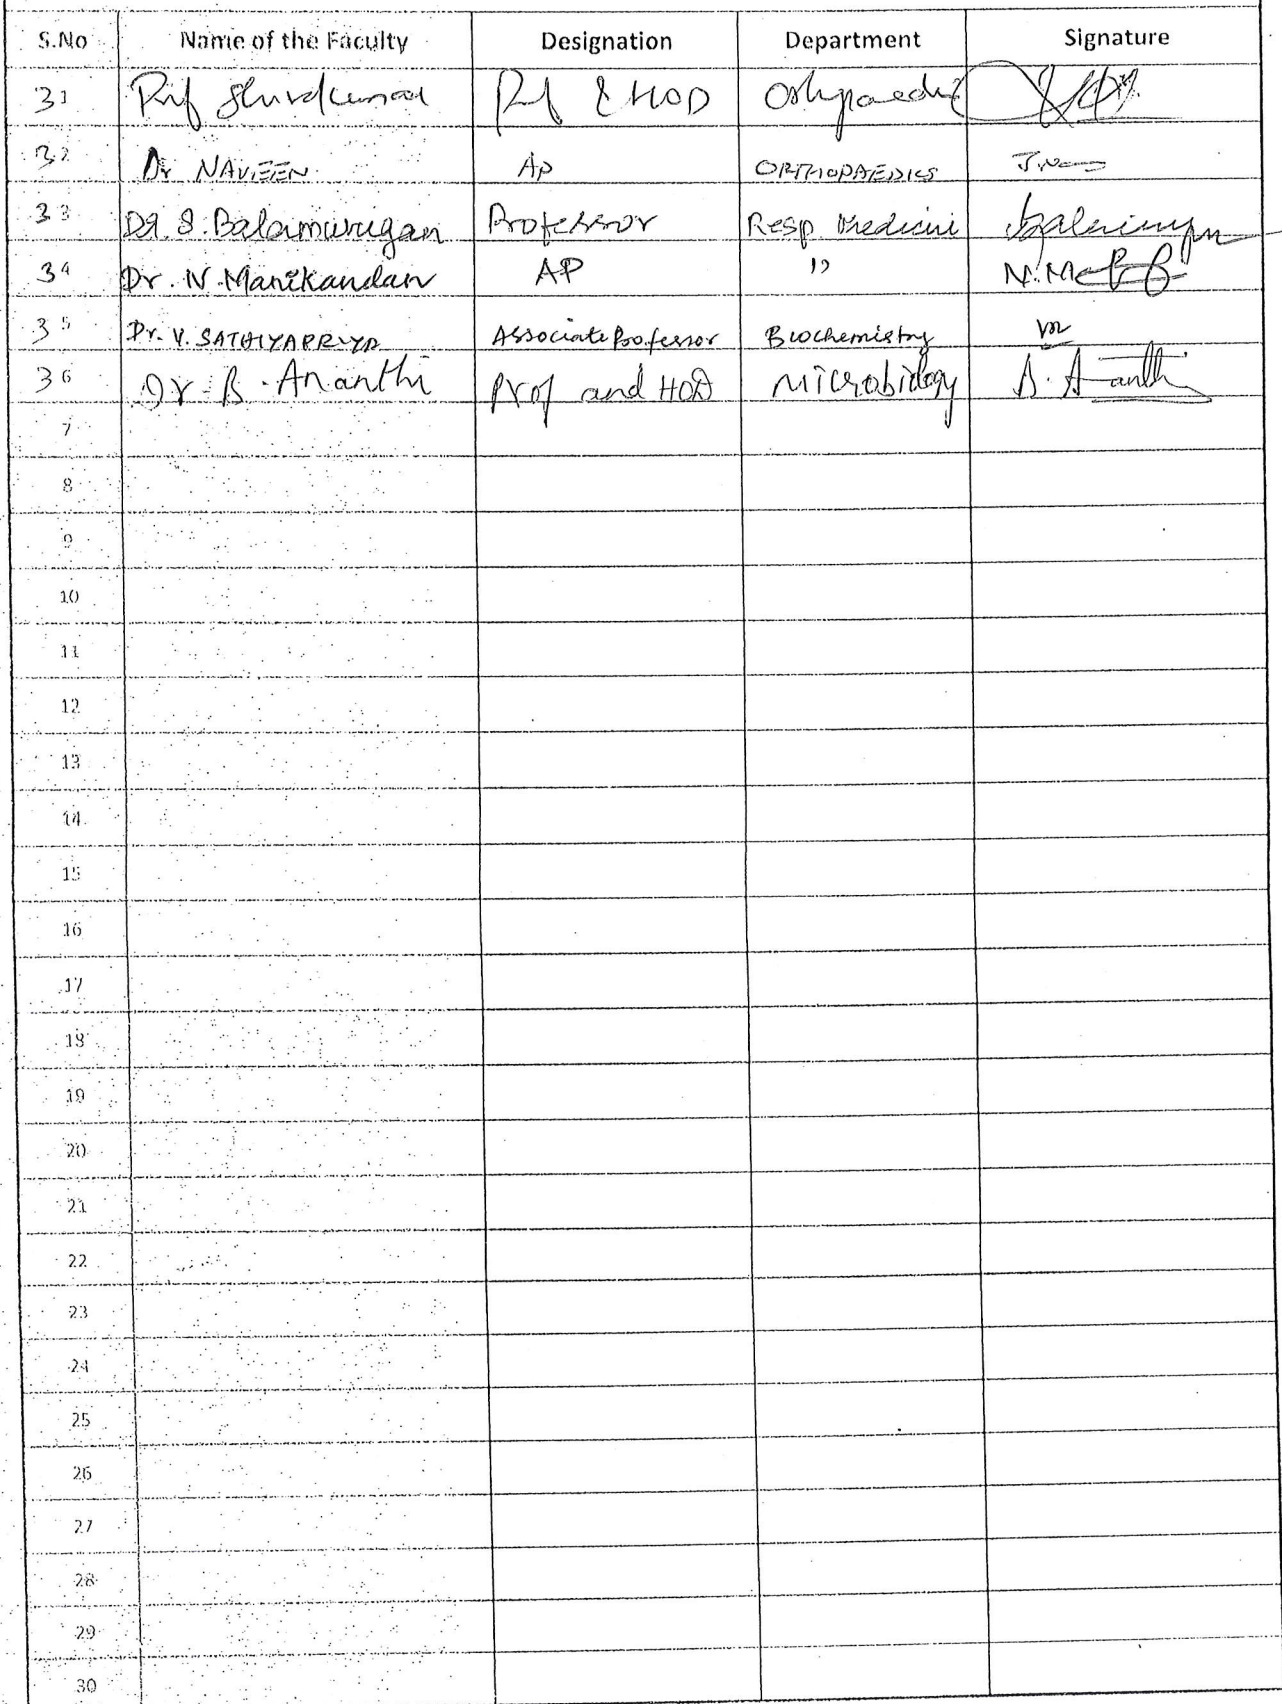 S.No Name of the Faculty Designation Department Signature
31 Prof & HOD Orthopaedic
32 Dr NAVEEN AP ORTHOPAEDICS
33 Dr. S. Balamurugan Professor Resp Medicine
34 Dr. N. Manikandan AP " N.M
35 Dr. V. SATHIYAPRIYA Associate Professor Biochemistry
36 Dr. B. Ananthi Prof and HOD Microbiology
7
8
9
10
11
12
13
14
15
16
17
18
19
20
21
22
23
24
25
26
27
28
29
30